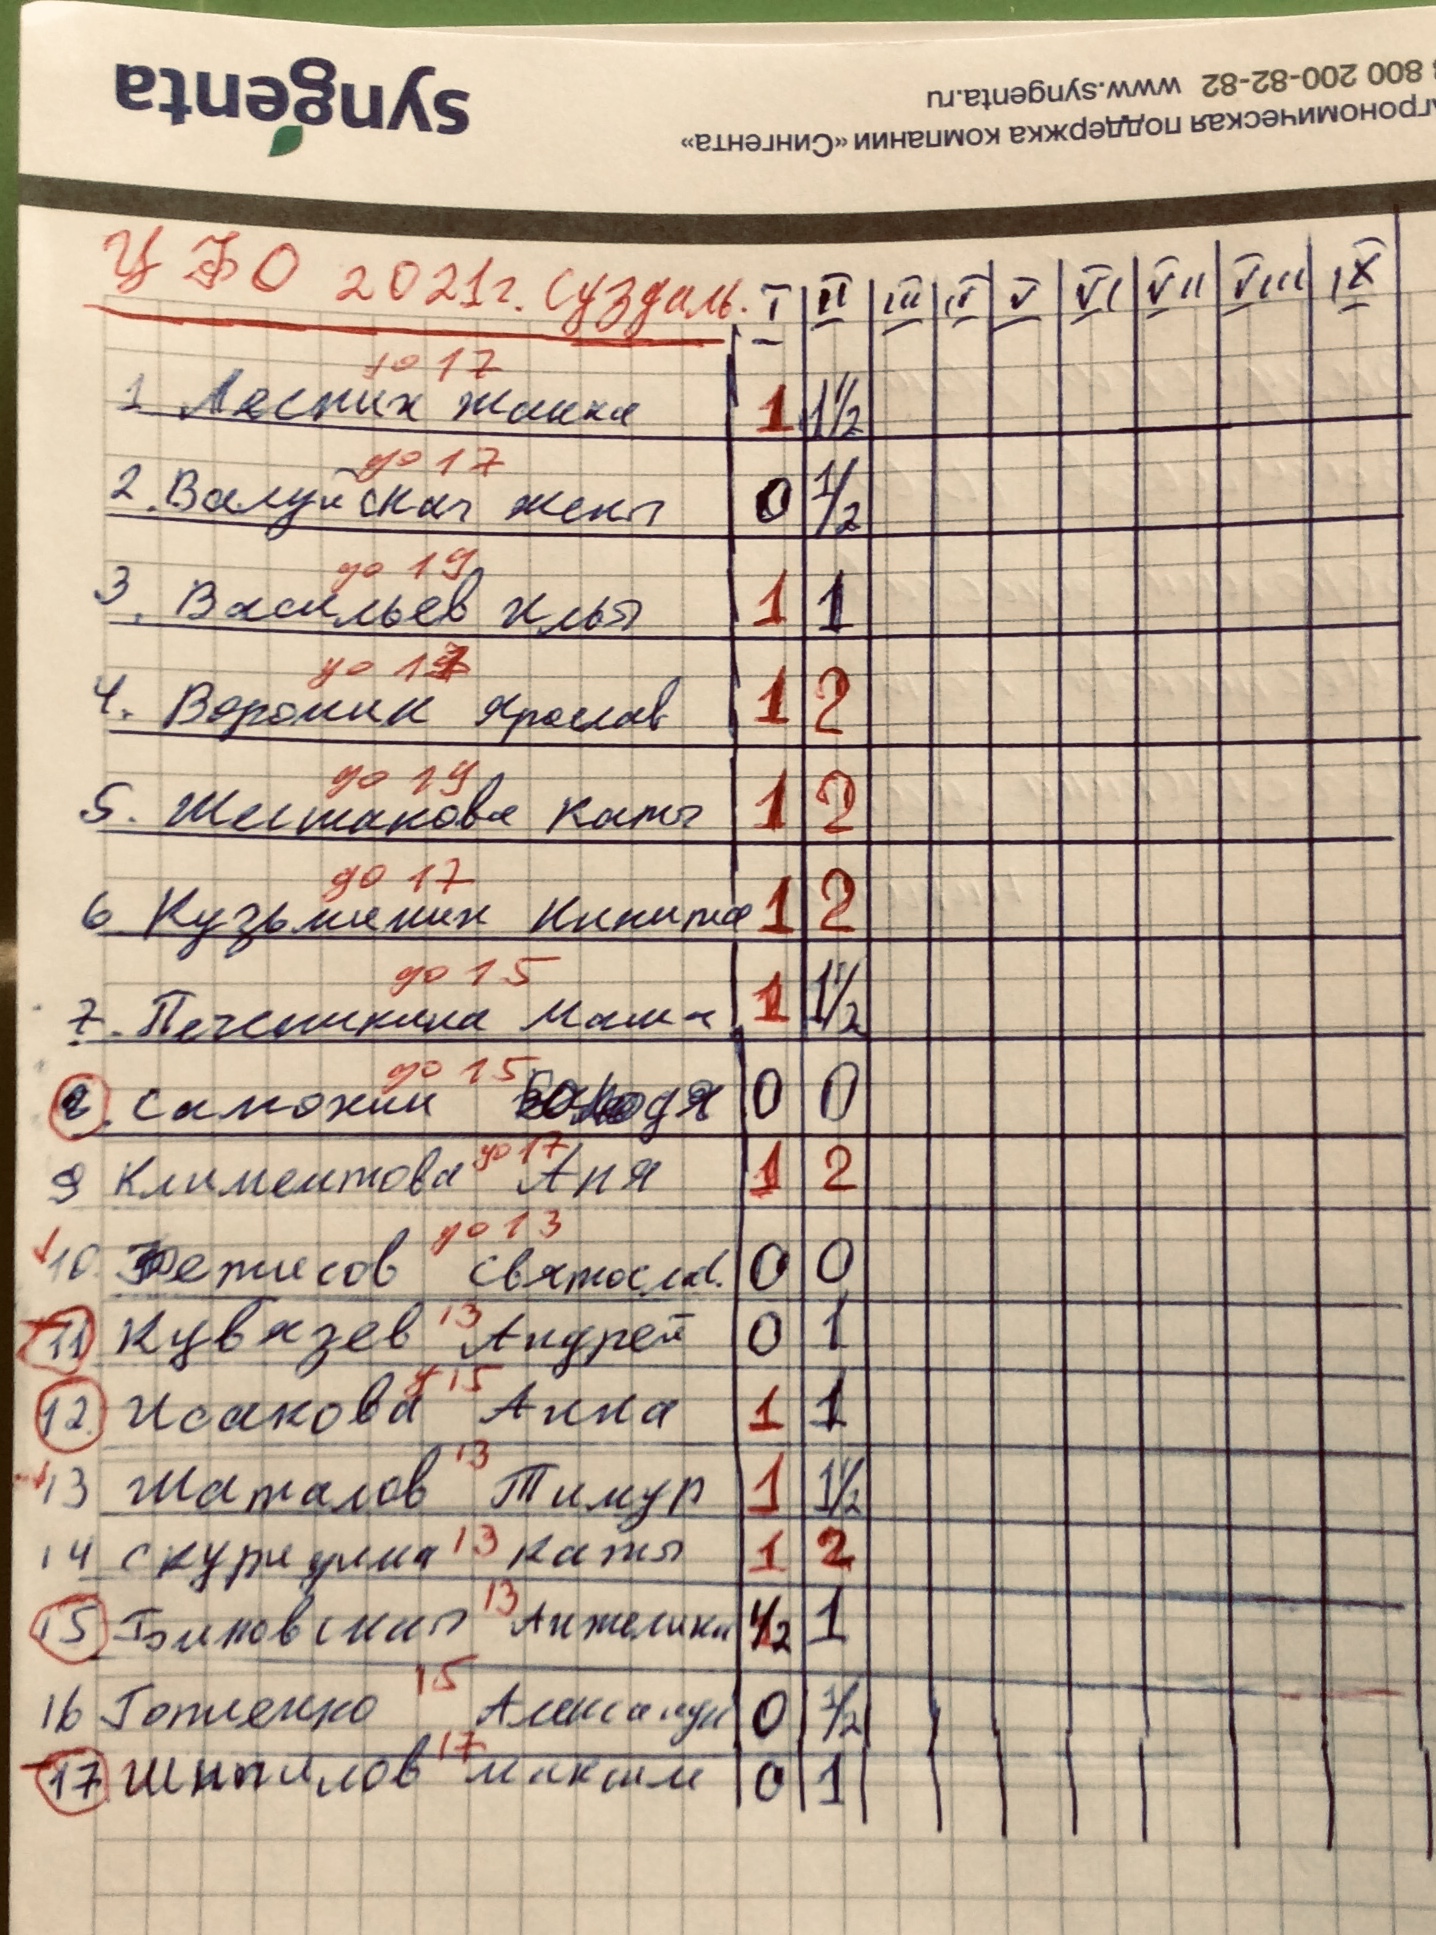 syngenta
Агрономическая поддержка компании «Сингента»
800 200-82-82 www.syngenta.ru
ЦФО 2021г. Суздаль. I II III IV V VI VII VIII IX
до 17
1 Лесных Жанна 1 1 1/2
до 17
2. Валуйская Женя 0 1/2
до 19
3. Васильев Илья 1 1
до 17
4. Воронин Ярослав 1 2
до 19
5. Шестакова Катя 1 2
до 17
6 Кузьминых Никита 1 2
до 15
7. Печенкина Маша 1 1 1/2
до 15
8. Самохин 0 0
до 17
9 Климентова Аня 1 2
до 13
10. Святослав. 0 0
13
11 Кувязев Андрей 0 1
д 15
12. Исакова Анна 1 1
13
13 Шаталов Тимур 1 1 1/2
13
14 Скуридина Катя 1 2
13
15 Анжелика 1/2 1
15
16 Готленко 0 1/2
17
17 Шипилов Максим 0 1